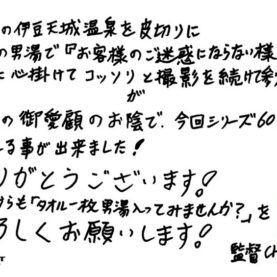 の伊豆天城温泉を皮切りに
の男湯で『お客様のご迷惑にならない様
に心掛けてコッソリと撮影を続け参
が
の御愛顧のお陰で、今回シリーズ60
る事が出来ました!
りがとうございます!
からも「タオル一枚男湯入ってみませんか?」を
ろしくお願いします!
監督